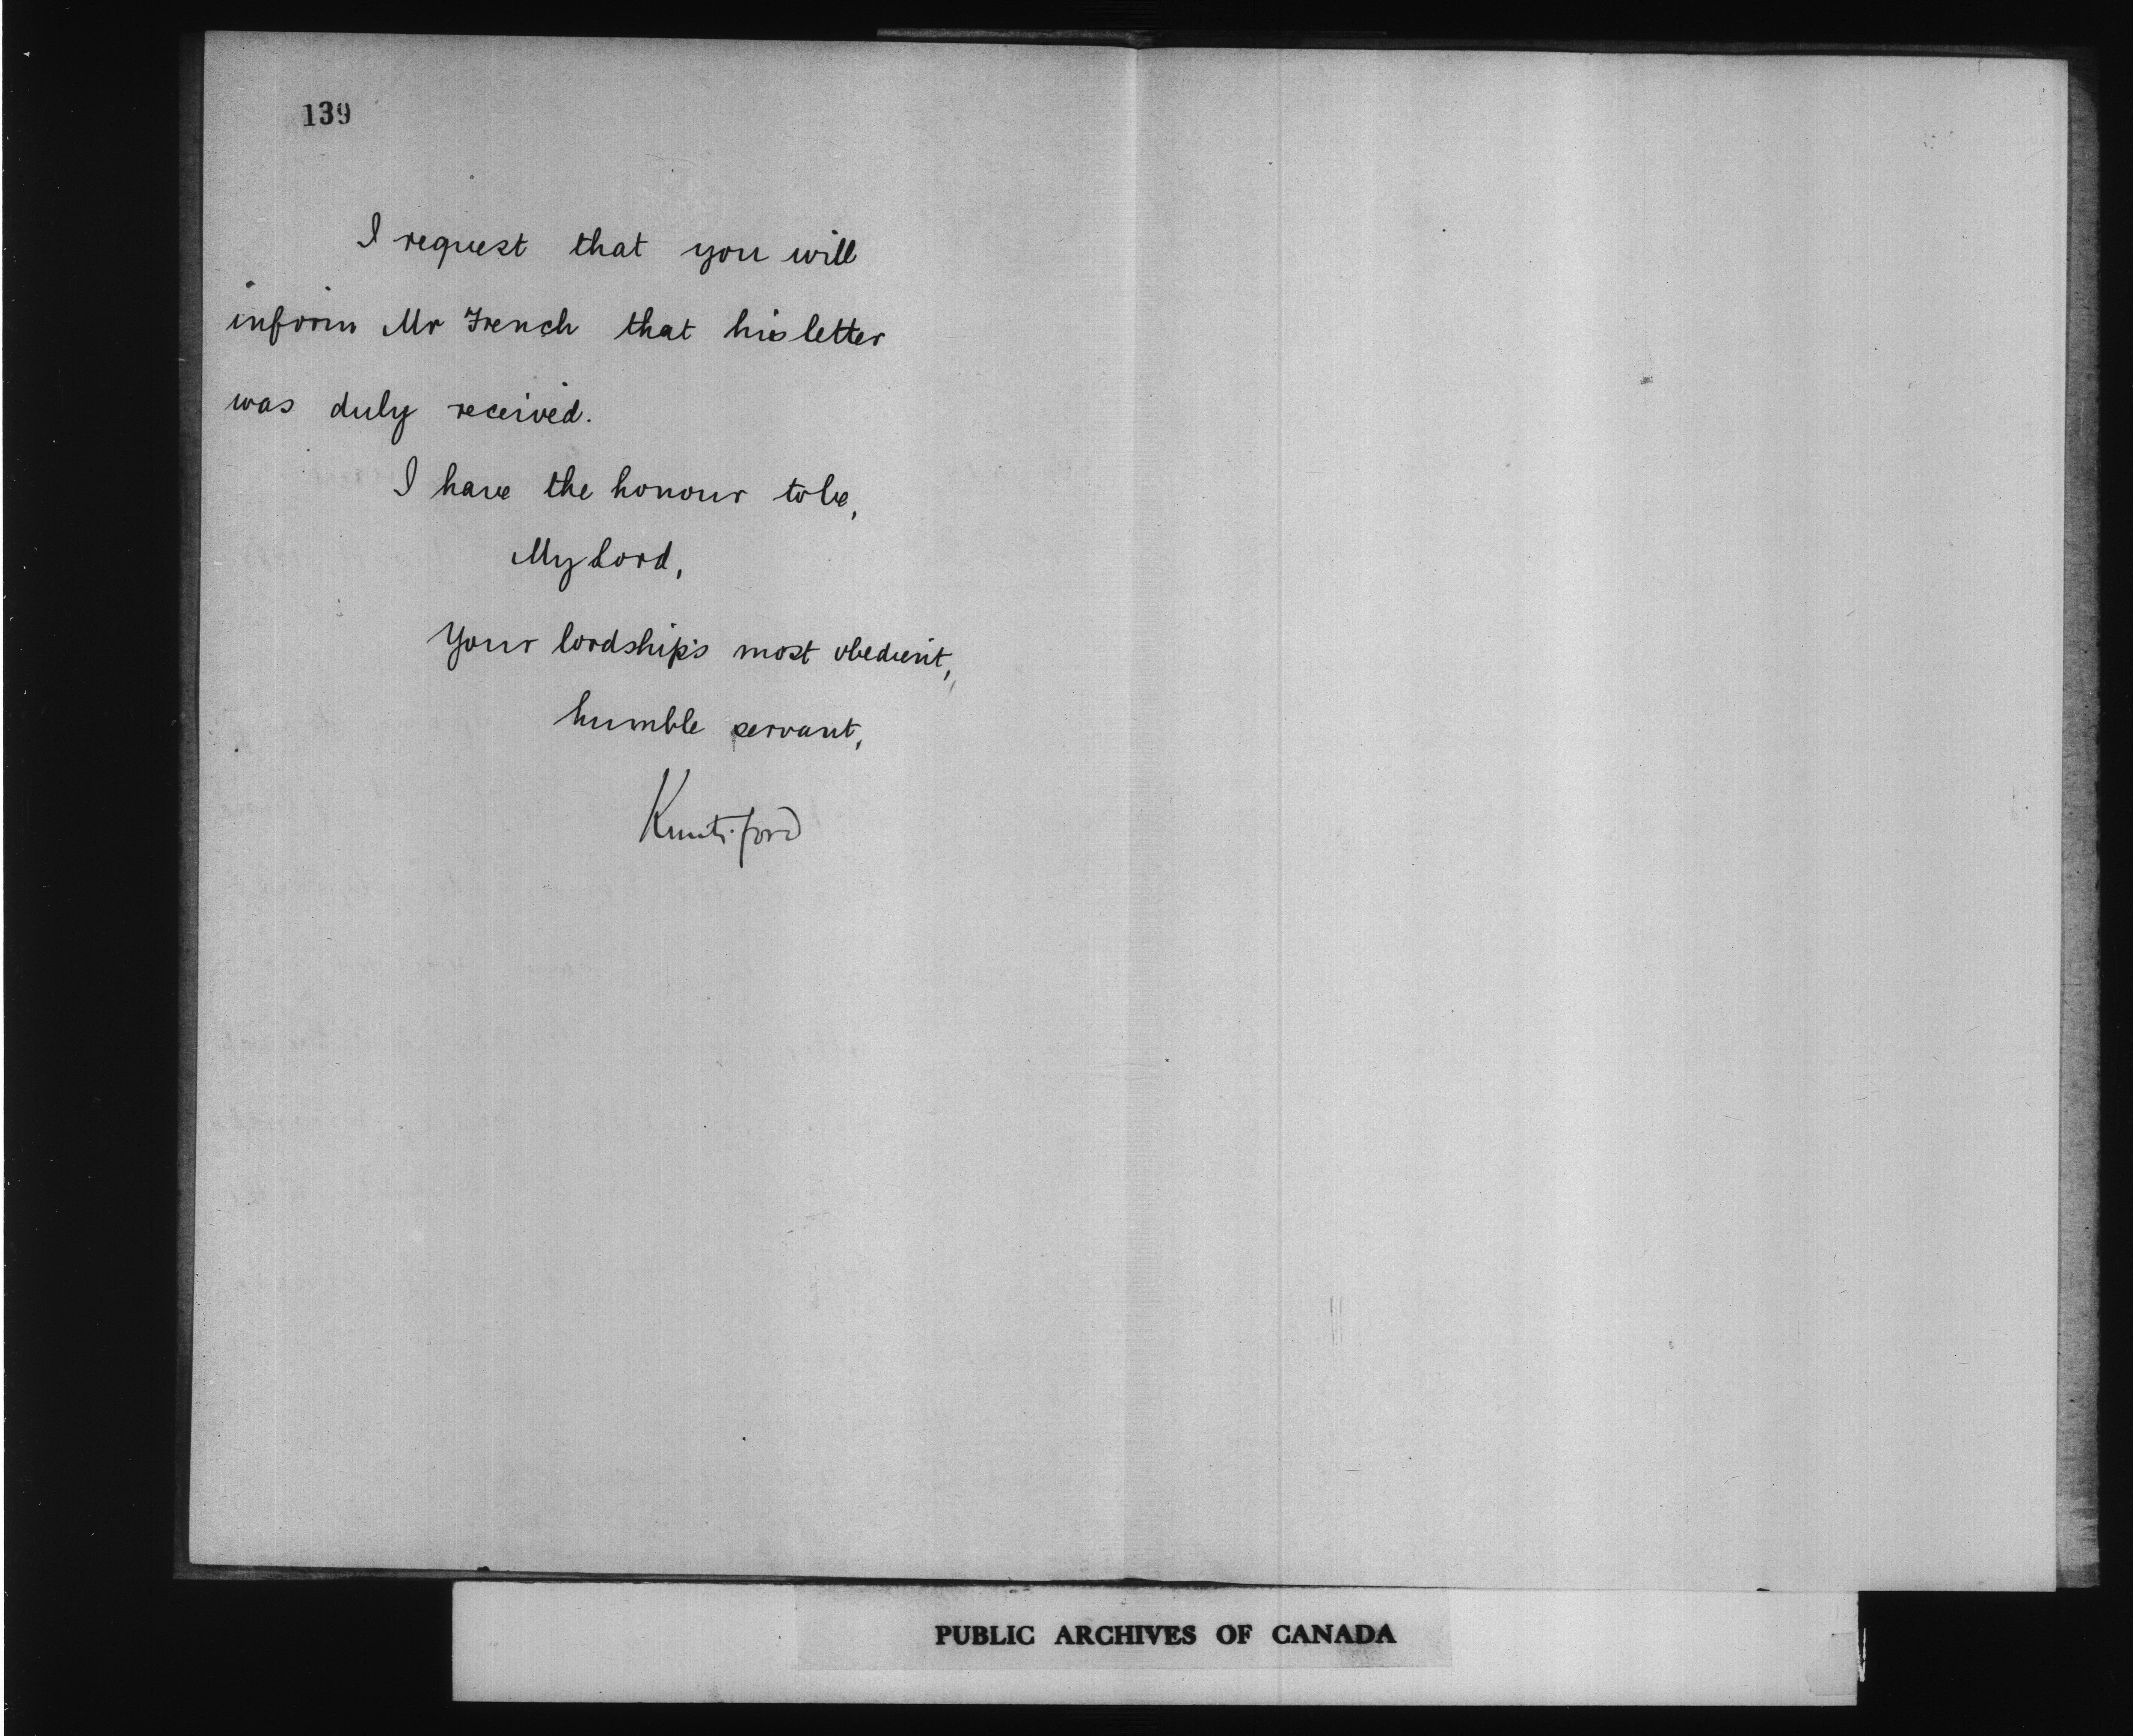 139
I request that you will
inform Mr French that his letter
was duly received.
I have the honour to be,
My Lord,
Your lordship's most obedient,
humble servant,
Knutsford
PUBLIC ARCHIVES OF CANADA